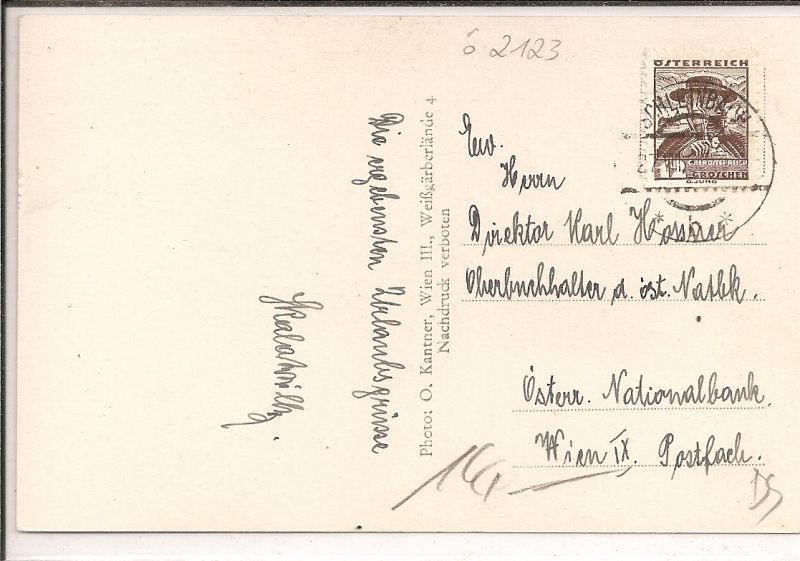 ö 2123
ÖSTERREICH
OBERÖSTERREICH
GROSCHEN
G. JUNG
Die ergebensten Urlaubsgrüsse
Photo: O. Kantner, Wien III., Weißgärberlände 4
Nachdruck verboten
Ew.
Herrn
Direktor Karl
Oberbuchhalter d. öst. Natbk.
Österr. Nationalbank.
Wien IX. Postfach.